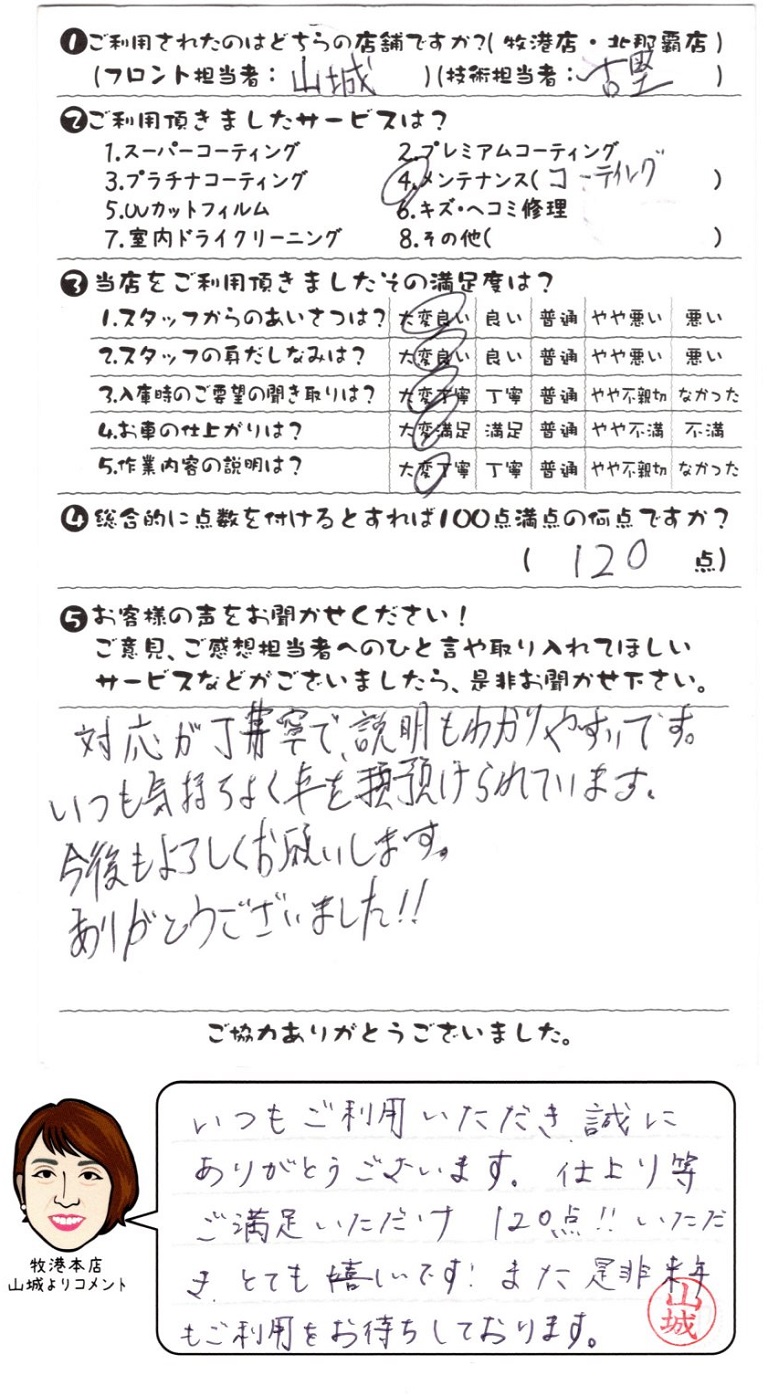 ❶ご利用されたのはどちらの店舗ですか?(牧港店・北那覇店)
(フロント担当者: 山城 )(技術担当者: )
❷ご利用頂きましたサービスは?
1.スーパーコーティング 2.プレミアムコーティング
3.プラチナコーティング 4.メンテナンス(コーティング )
5.UVカットフィルム 6.キズ・ヘコミ修理
7.室内ドライクリーニング 8.その他( )
❸当店をご利用頂きましたその満足度は?
1.スタッフからのあいさつは? 大変良い 良い 普通 やや悪い 悪い
2.スタッフの身だしなみは? 大変良い 良い 普通 やや悪い 悪い
3.入庫時のご要望の聞き取りは? 大変丁寧 丁寧 普通 やや不親切 なかった
4.お車の仕上がりは? 大変満足 満足 普通 やや不満 不満
5.作業内容の説明は? 大変丁寧 丁寧 普通 やや不親切 なかった
❹総合的に点数を付けるとすれば100点満点の何点ですか?
( 120 点)
❺お客様の声をお聞かせください!
ご意見、ご感想担当者へのひと言や取り入れてほしい
サービスなどがございましたら、是非お聞かせ下さい。
対応が丁寧で、説明もわかりやすいです。
いつも気持ちよく車を預けられています。
今後もよろしくお願いします。
ありがとうございました!!
ご協力ありがとうございました。
いつもご利用いただき、誠に
ありがとうございます。仕上り等
ご満足いただけ 120点!! いただ
き、とても嬉しいです! また是非来年
もご利用をお待ちしております。
山城
牧港本店
山城よりコメント